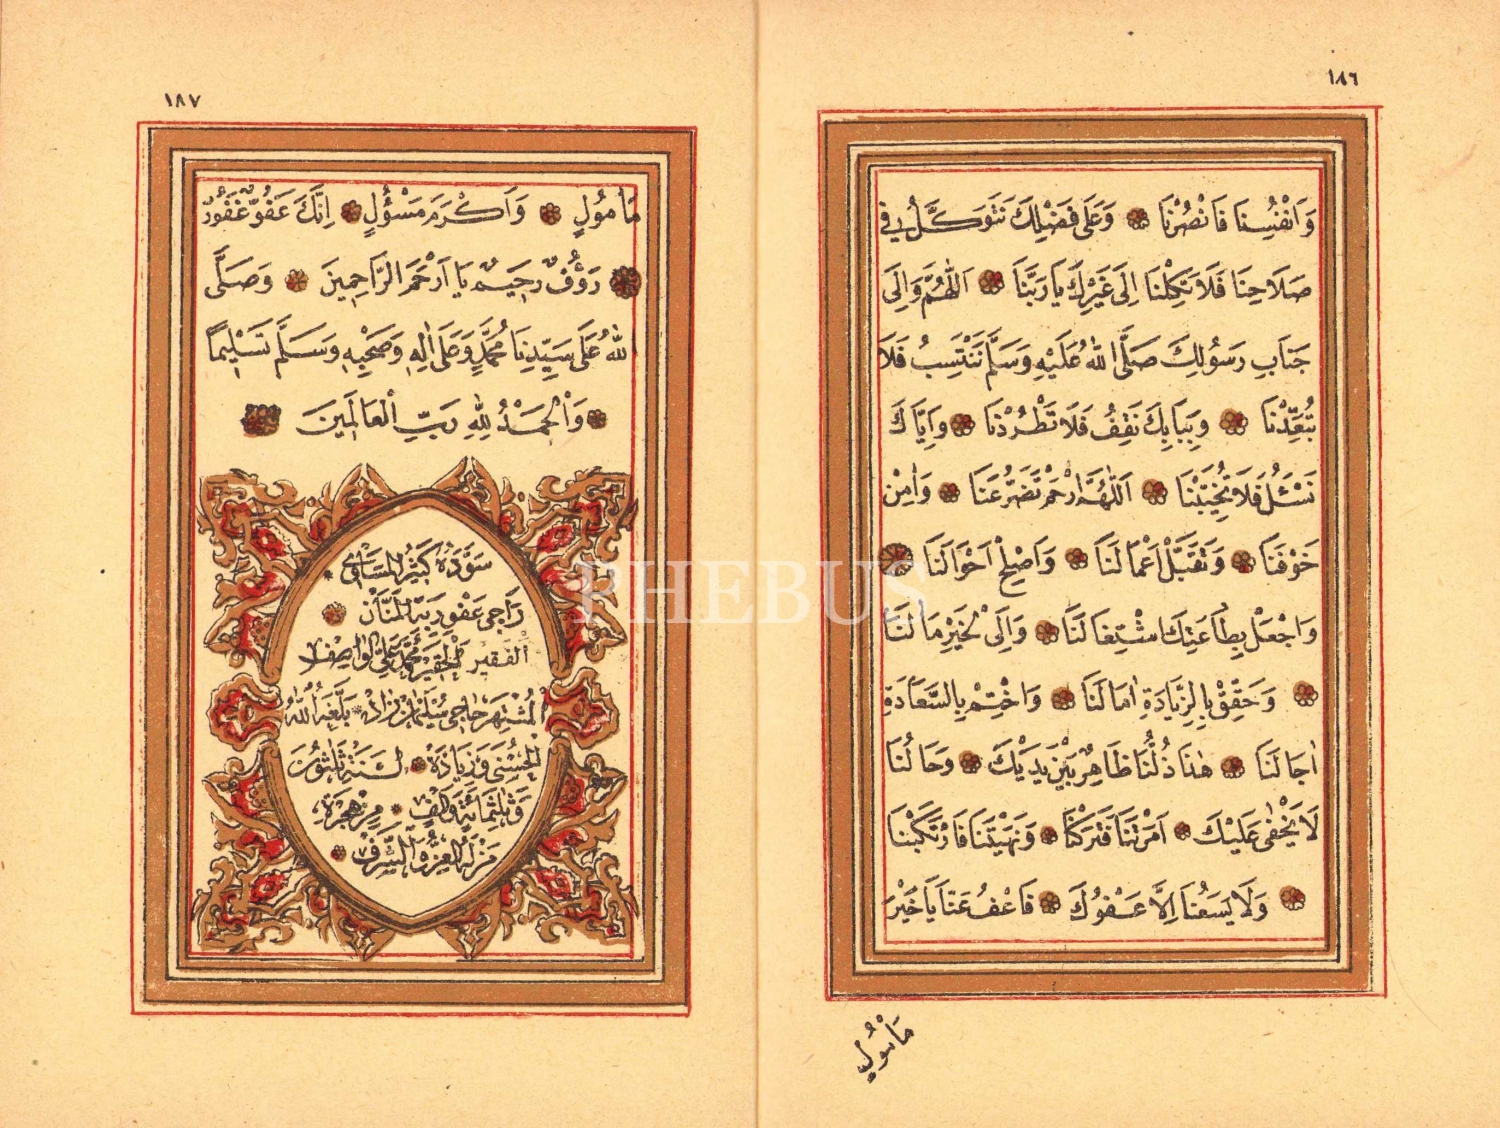 ١٨٦
وَانْفُسِنَا فَانْصُرْنَا وَعَلَى فَضْلِكَ نَتَوَكَّلُ فِي
صَلَاحِنَا فَلَا تَكِلْنَا اِلَى غَيْرِكَ يَا رَبَّنَا اَللّٰهُمَّ وَاِلَى
جَنَابِ رَسُولِكَ صَلَّى اللهُ عَلَيْهِ وَسَلَّمَ نَنْتَسِبُ فَلَا
تُبَعِّدْنَا وَبِبَابِكَ نَقِفُ فَلَا تَطْرُدْنَا وَاِيَّاكَ
نَسْئَلُ فَلَا تُخَيِّبْنَا اَللّٰهُمَّ ارْحَمْ تَضَرُّعَنَا وَاٰمِنْ
خَوْفَنَا وَتَقَبَّلْ اَعْمَالَنَا وَاَصْلِحْ اَحْوَالَنَا
وَاجْعَلْ بِطَاعَتِكَ اشْتِغَالَنَا وَاِلَى الْخَيْرِ مَاٰلَنَا
وَحَقِّقْ بِالزِّيَادَةِ اٰمَالَنَا وَاخْتِمْ بِالسَّعَادَةِ
اٰجَالَنَا هٰذَا ذُلُّنَا ظَاهِرٌ بَيْنَ يَدَيْكَ وَحَالُنَا
لَا يَخْفٰى عَلَيْكَ اَمَرْتَنَا فَتَرَكْنَا وَنَهَيْتَنَا فَارْتَكَبْنَا
وَلَا يَسَعُنَا اِلَّا عَفْوُكَ فَاعْفُ عَنَّا يَا خَيْرَ
مَاْمُولٍ
١٨٧
مَاْمُولٍ وَاَكْرَمَ مَسْؤُلٍ اِنَّكَ عَفُوٌّ غَفُورٌ
رَؤُفٌ رَحِيمٌ يَا اَرْحَمَ الرَّاحِمِينَ وَصَلَّى
اللهُ عَلَى سَيِّدِنَا مُحَمَّدٍ وَعَلَى اٰلِهِ وَصَحْبِهِ وَسَلَّمَ تَسْلِيمًا
وَالْحَمْدُ لِلّٰهِ رَبِّ الْعَالَمِينَ
سَوَّدَهُ كَثِيرُ الْمَسَاوِى
رَاجِى عَفْوِ رَبِّهِ الْمَنَّانِ
الفقير الْحَقِيرُ مُحَمَّد عَلِى الْوَاصِفِ
الْمُشْتَهَرْ حَاجِى سُلَيْمَان زَادَهْ بَلَّغَهُ اللهُ
الْحُسْنٰى وَزِيَادَةْ لِسَنَةِ ثَلٰثُونَ
وَثَلٰثُمِائَةٍ وَاَلْفٍ مِنْ هِجْرَةِ
مَنْ لَهُ الْعِزُّ وَالشَّرَفْ
PHEBUS